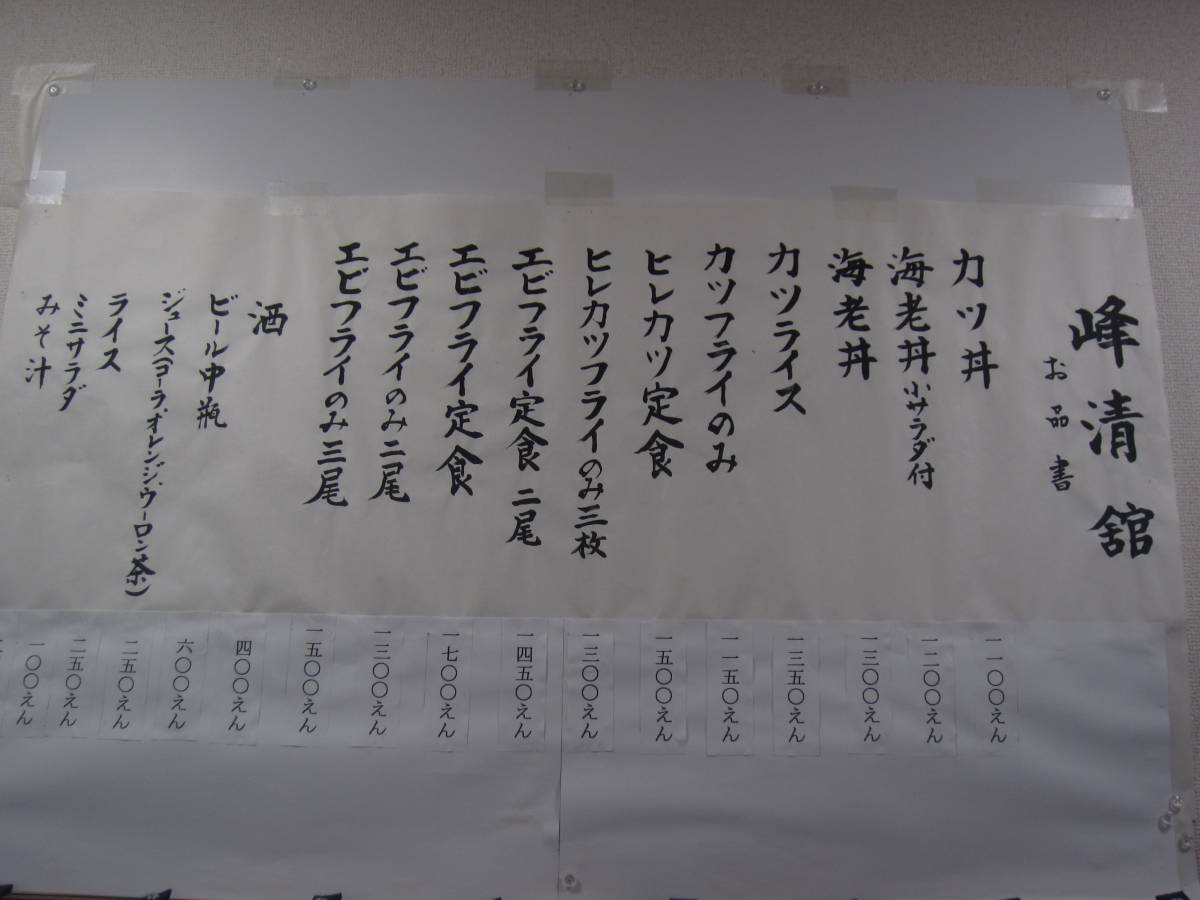 峰清舘
お品書
カツ丼
海老丼小サラダ付
海老丼
カツライス
カツフライのみ
ヒレカツ定食
ヒレカツフライのみ三枚
エビフライ定食 二尾
エビフライ定食
エビフライのみ二尾
エビフライのみ三尾
酒
ビール中瓶
ジュース(コーラ、オレンジ、ウーロン茶)
ライス
ミニサラダ
みそ汁
一一〇〇えん
一二〇〇えん
一三〇〇えん
一三五〇えん
一一五〇えん
一五〇〇えん
一三〇〇えん
一四五〇えん
一七〇〇えん
一三〇〇えん
一五〇〇えん
四〇〇えん
六〇〇えん
二五〇えん
二五〇えん
一〇〇えん